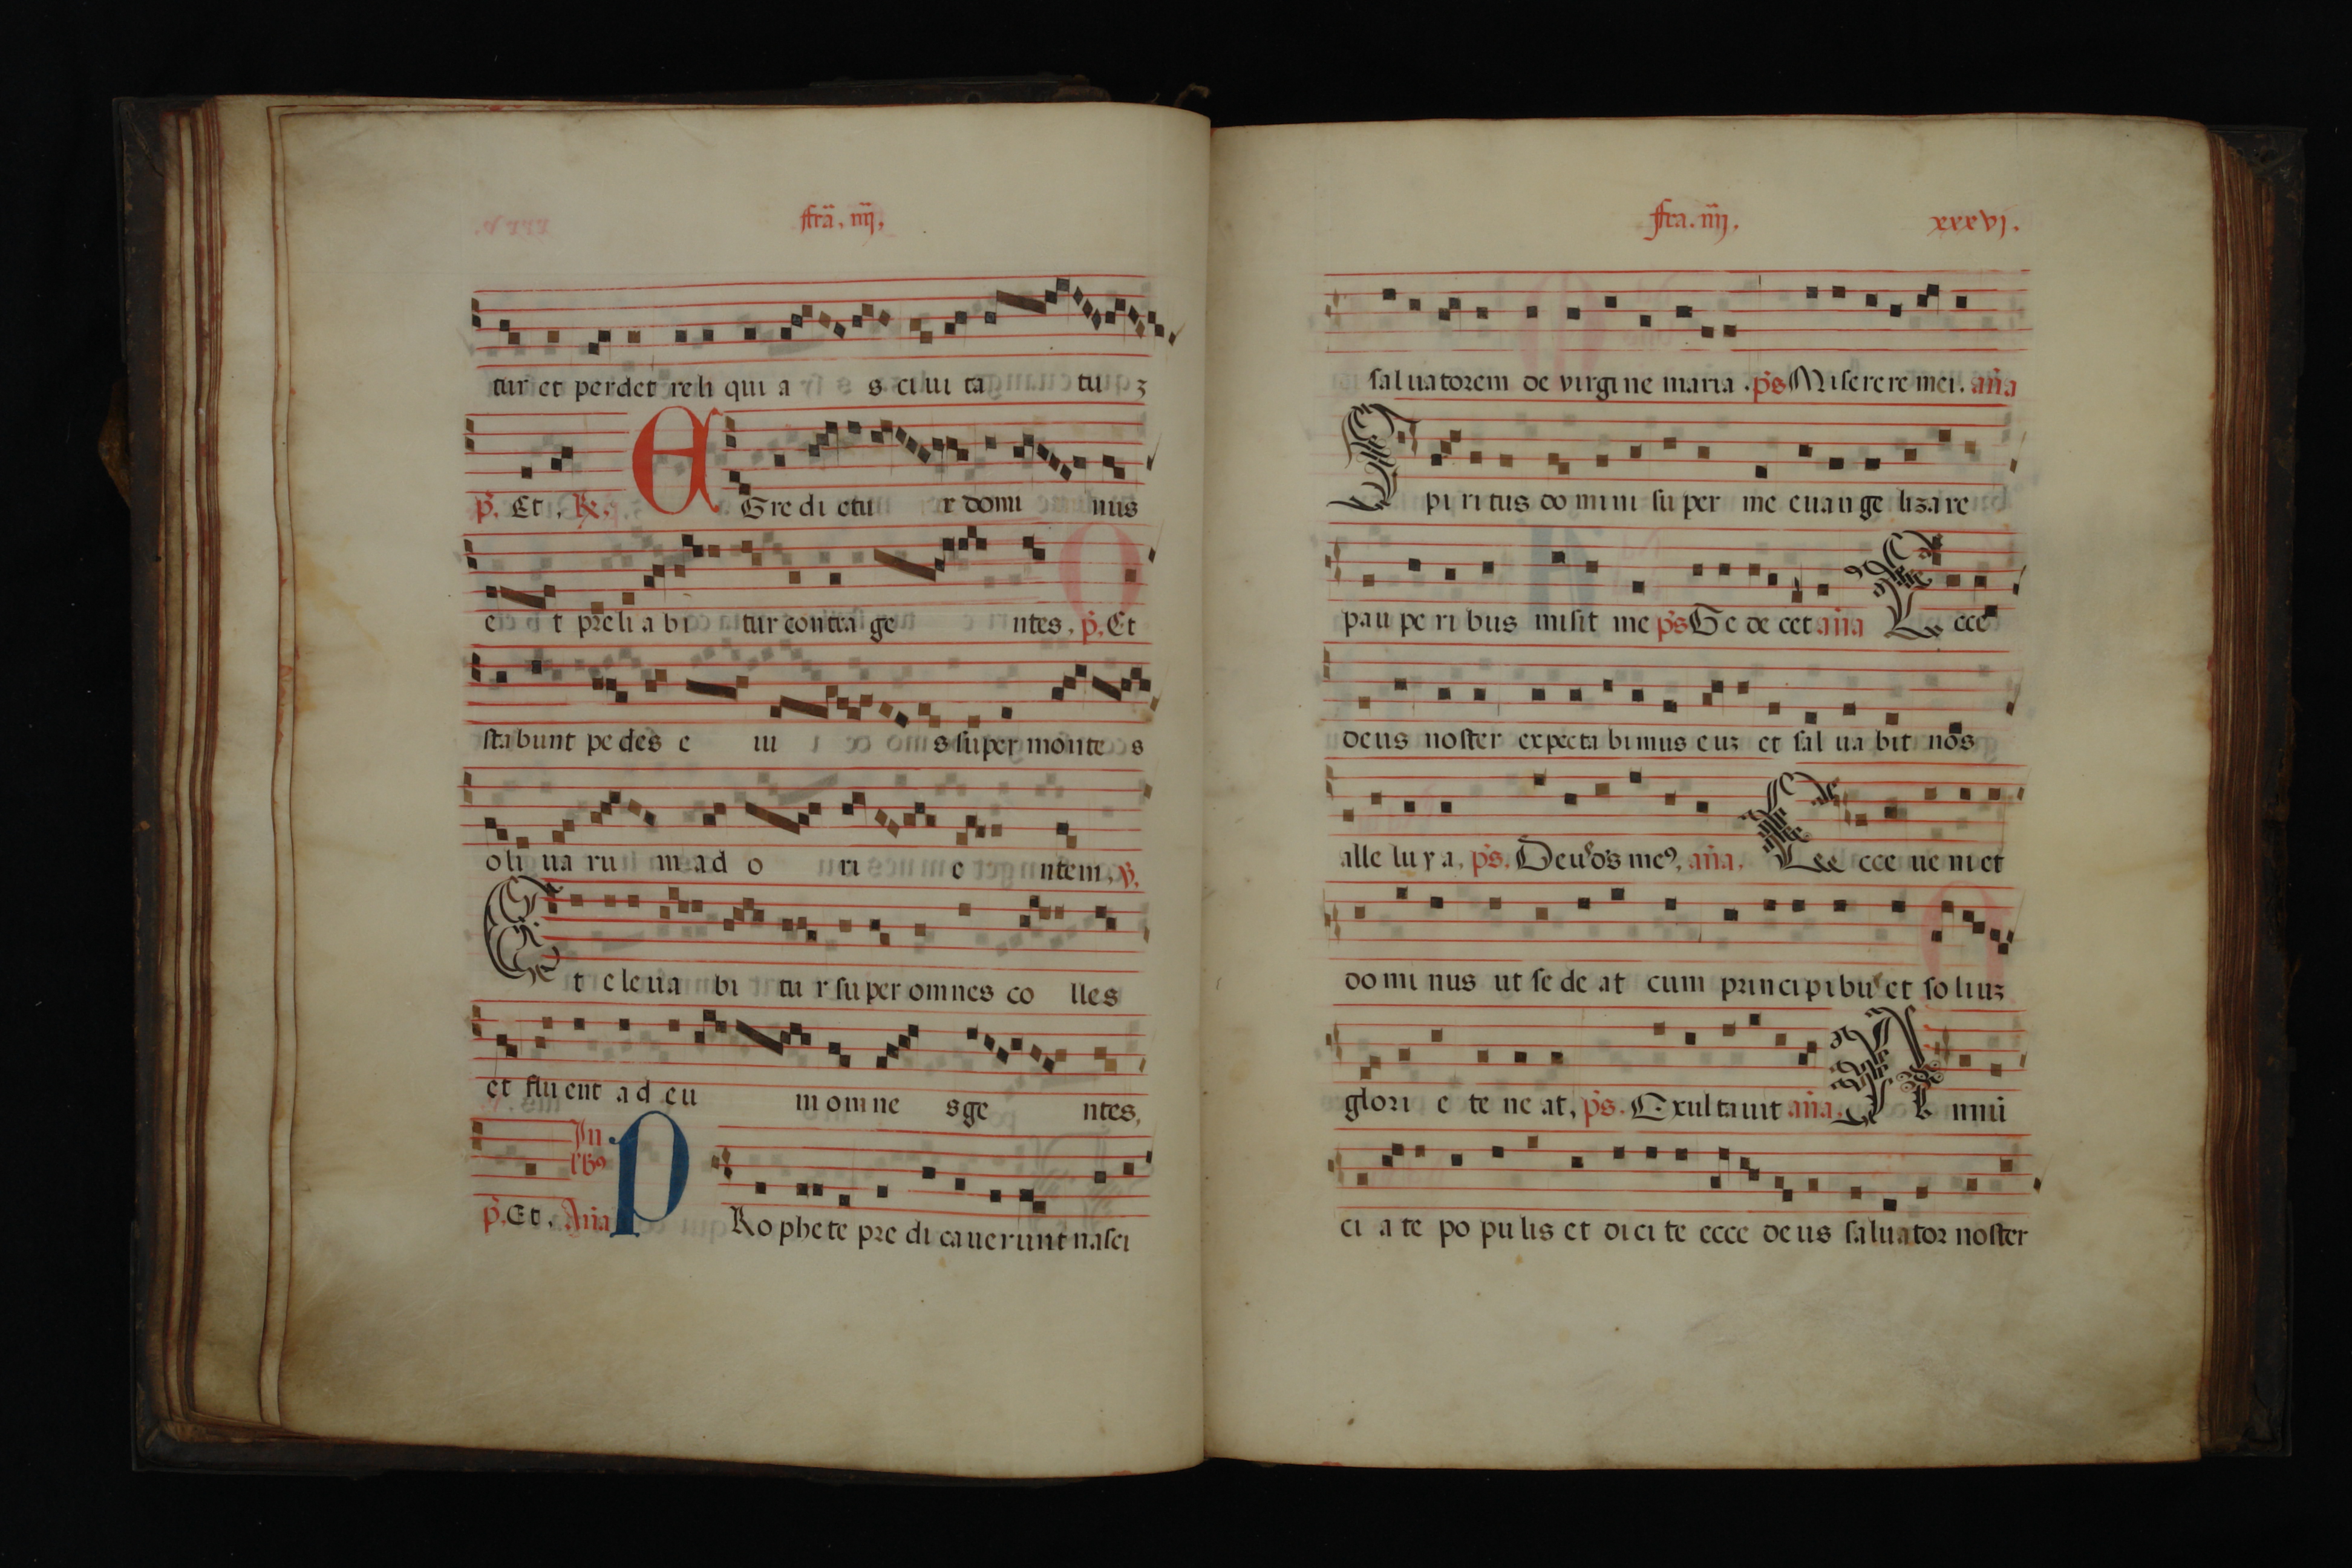 fra. iiij.
tur et perdet reli qui a s ciui ta tu ꝫ
p. Et. R. E Gre di etu r domi nus
e t preli a bi tur contra ge ntes. p. Et
stabunt pe des e iu s super monte s
oli ua ru m ad o ri e ntem. v.
Et eleua bi tu r super omnes co lles
et fluent ad eu m omne s ge ntes.
In
p. Et. Aña P Rophete pre di cauerunt nasci
fra. iiij. xxxvj.
saluatorem de virgine maria. ps Miserere mei. aña
S piritus domini super me euangelizare
pauperibus misit me ps Te decet aña Ecce
deus noster expectabimus euꝫ et saluabit nos
alleluya. ps. Deus ds meꝰ. aña. Ecce ueniet
dominus ut sedeat cum principibus et soliuꝫ
glorie teneat. ps. Exultauit aña. A N nun
ciate populis et dicite ecce deus saluator noster